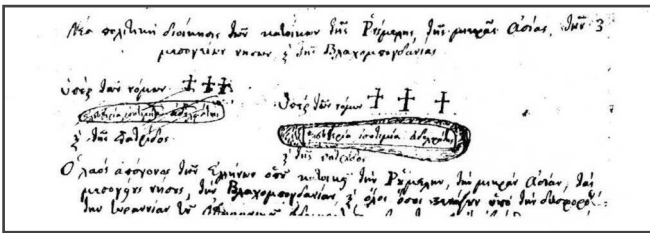 Νέα πολιτικὴ διοίκησις τῶν κατοίκων τῆς Ρούμελης, τῆς μικρᾶς Ἀσίας, τῶν
μεσογείων νήσων, ϗ τῆς Βλαχομπογδανίας
ὑπὲρ τῶν νόμων
ἐλευθερία ἰσοτιμία ἀδελφότης
ϗ τῆς πατρίδος
ὑπὲρ τῶν νόμων
ἐλευθερία ἰσοτιμία ἀδελφότης
ϗ τῆς πατρίδος
Ὁ λαὸς ἀπόγονος τῶν Ἑλλήνων ὁποῦ κατοικεῖ τὴν Ρούμελην, τὴν μικρὰν Ἀσίαν, τὰς
μεσογείους νήσους, τὴν Βλαχομπογδανίαν, ϗ ὅλοι ὅσοι στενάζουν ὑπὸ τὴν
τὴν τυραννίαν τοῦ